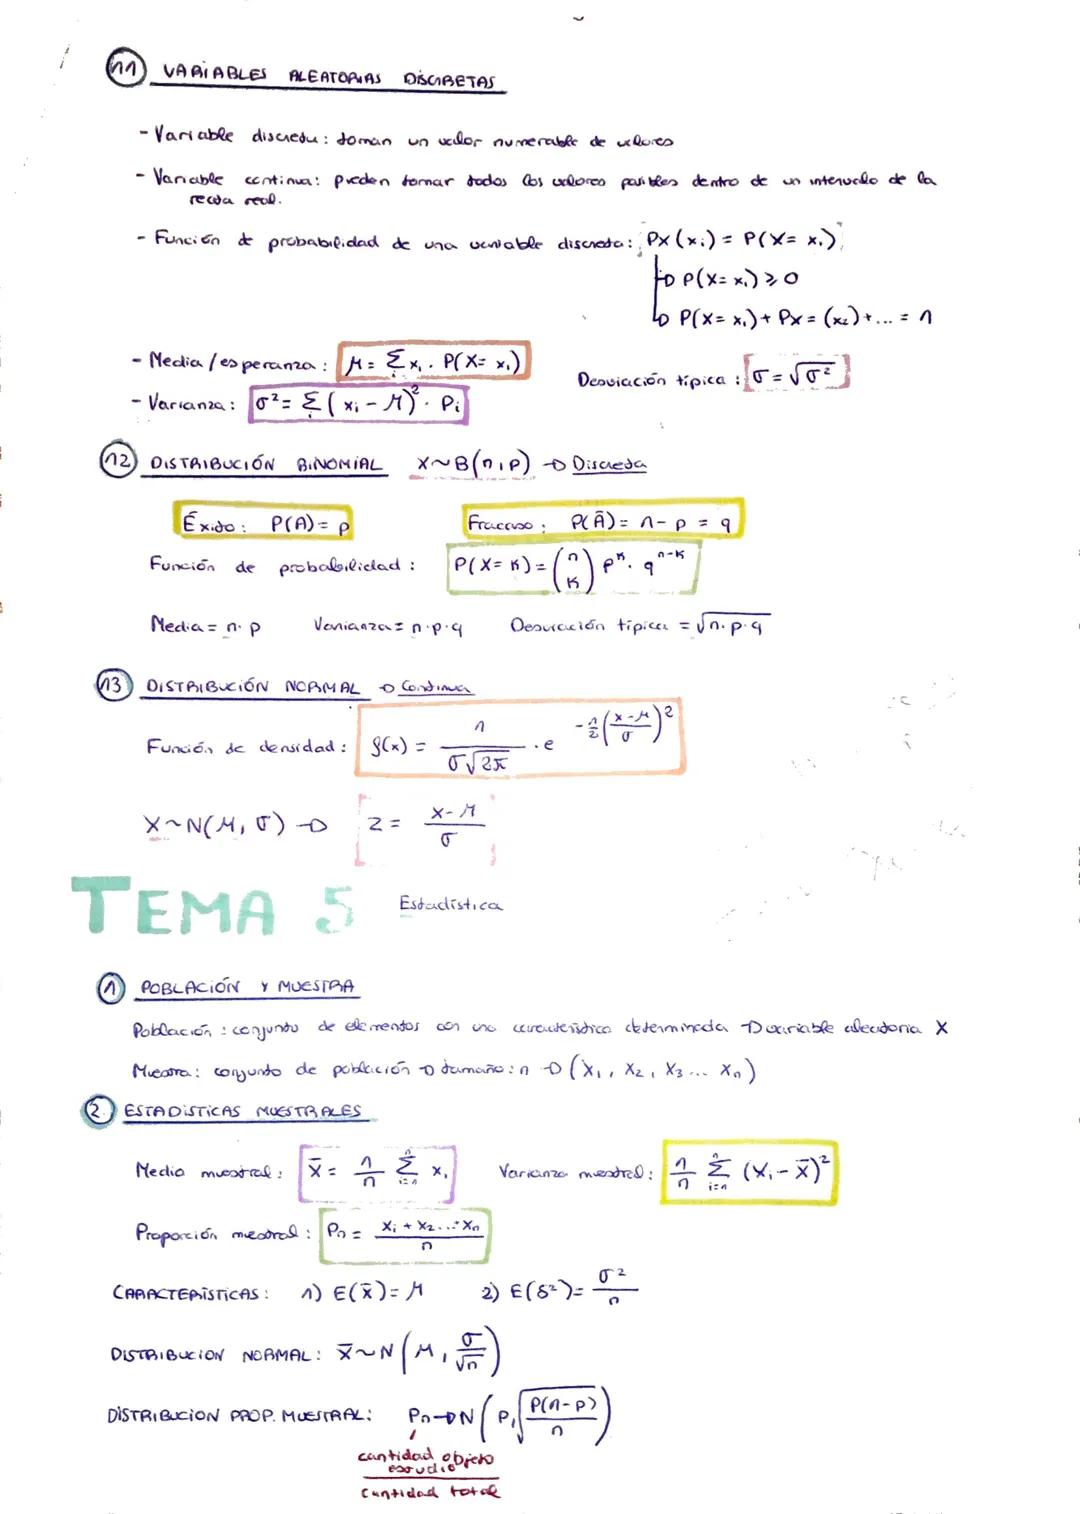 11 VARIABLES ALEATORIAS DISCRETAS
- Variable discreta: toman un valor numerable de valores
- Variable continua: pueden tomar todos los valores posibles dentro de un intervalo de la
recta real.
- Función de probabilidad de una variable discreta: Px(xi) = P(X= xi)
→ P(X= xi) ≥ 0
→ P(X= x1) + Px = (x2) + ... = 1
- Media / esperanza: μ = Σ xi · P(X= xi)
Desviación típica: σ = √σ²
- Varianza: σ² = Σ (xi - μ)² · Pi
12 DISTRIBUCIÓN BINOMIAL X~B(n,p) → Discreta
Éxito: P(A) = p Fracaso: P(Ā) = 1- p = q
Función de probabilidad: P(X= K) = (n K) p^K · q^(n-K)
Media = n · p Varianza = n·p·q Desviación típica = √n·p·q
13 DISTRIBUCIÓN NORMAL → Continua
Función de densidad: f(x) = 1/(σ√2π) · e^(-1/2 ((x-μ)/σ)²)
X~N(μ, σ) → Z = (x-μ)/σ
TEMA 5 Estadística
1 POBLACIÓN Y MUESTRA
Población: conjunto de elementos con una característica determinada → variable aleatoria X
Muestra: conjunto de población → tamaño: n → (X1, X2, X3 ... Xn)
2. ESTADÍSTICAS MUESTRALES
Media muestral: x̄ = 1/n Σ(i=1, n) xi Varianza muestral: 1/n Σ(i=1, n) (Xi - x̄)²
Proporción muestral: Pn = (Xi + X2 ... + Xn)/n
CARACTERÍSTICAS: 1) E(x̄) = μ 2) E(δ²) = σ²/n
DISTRIBUCIÓN NORMAL: x̄~N(μ, σ/√n)
DISTRIBUCIÓN PROP. MUESTRAL: Pn→N(P, √(P(1-P)/n))
cantidad objeto
estudio
cantidad total